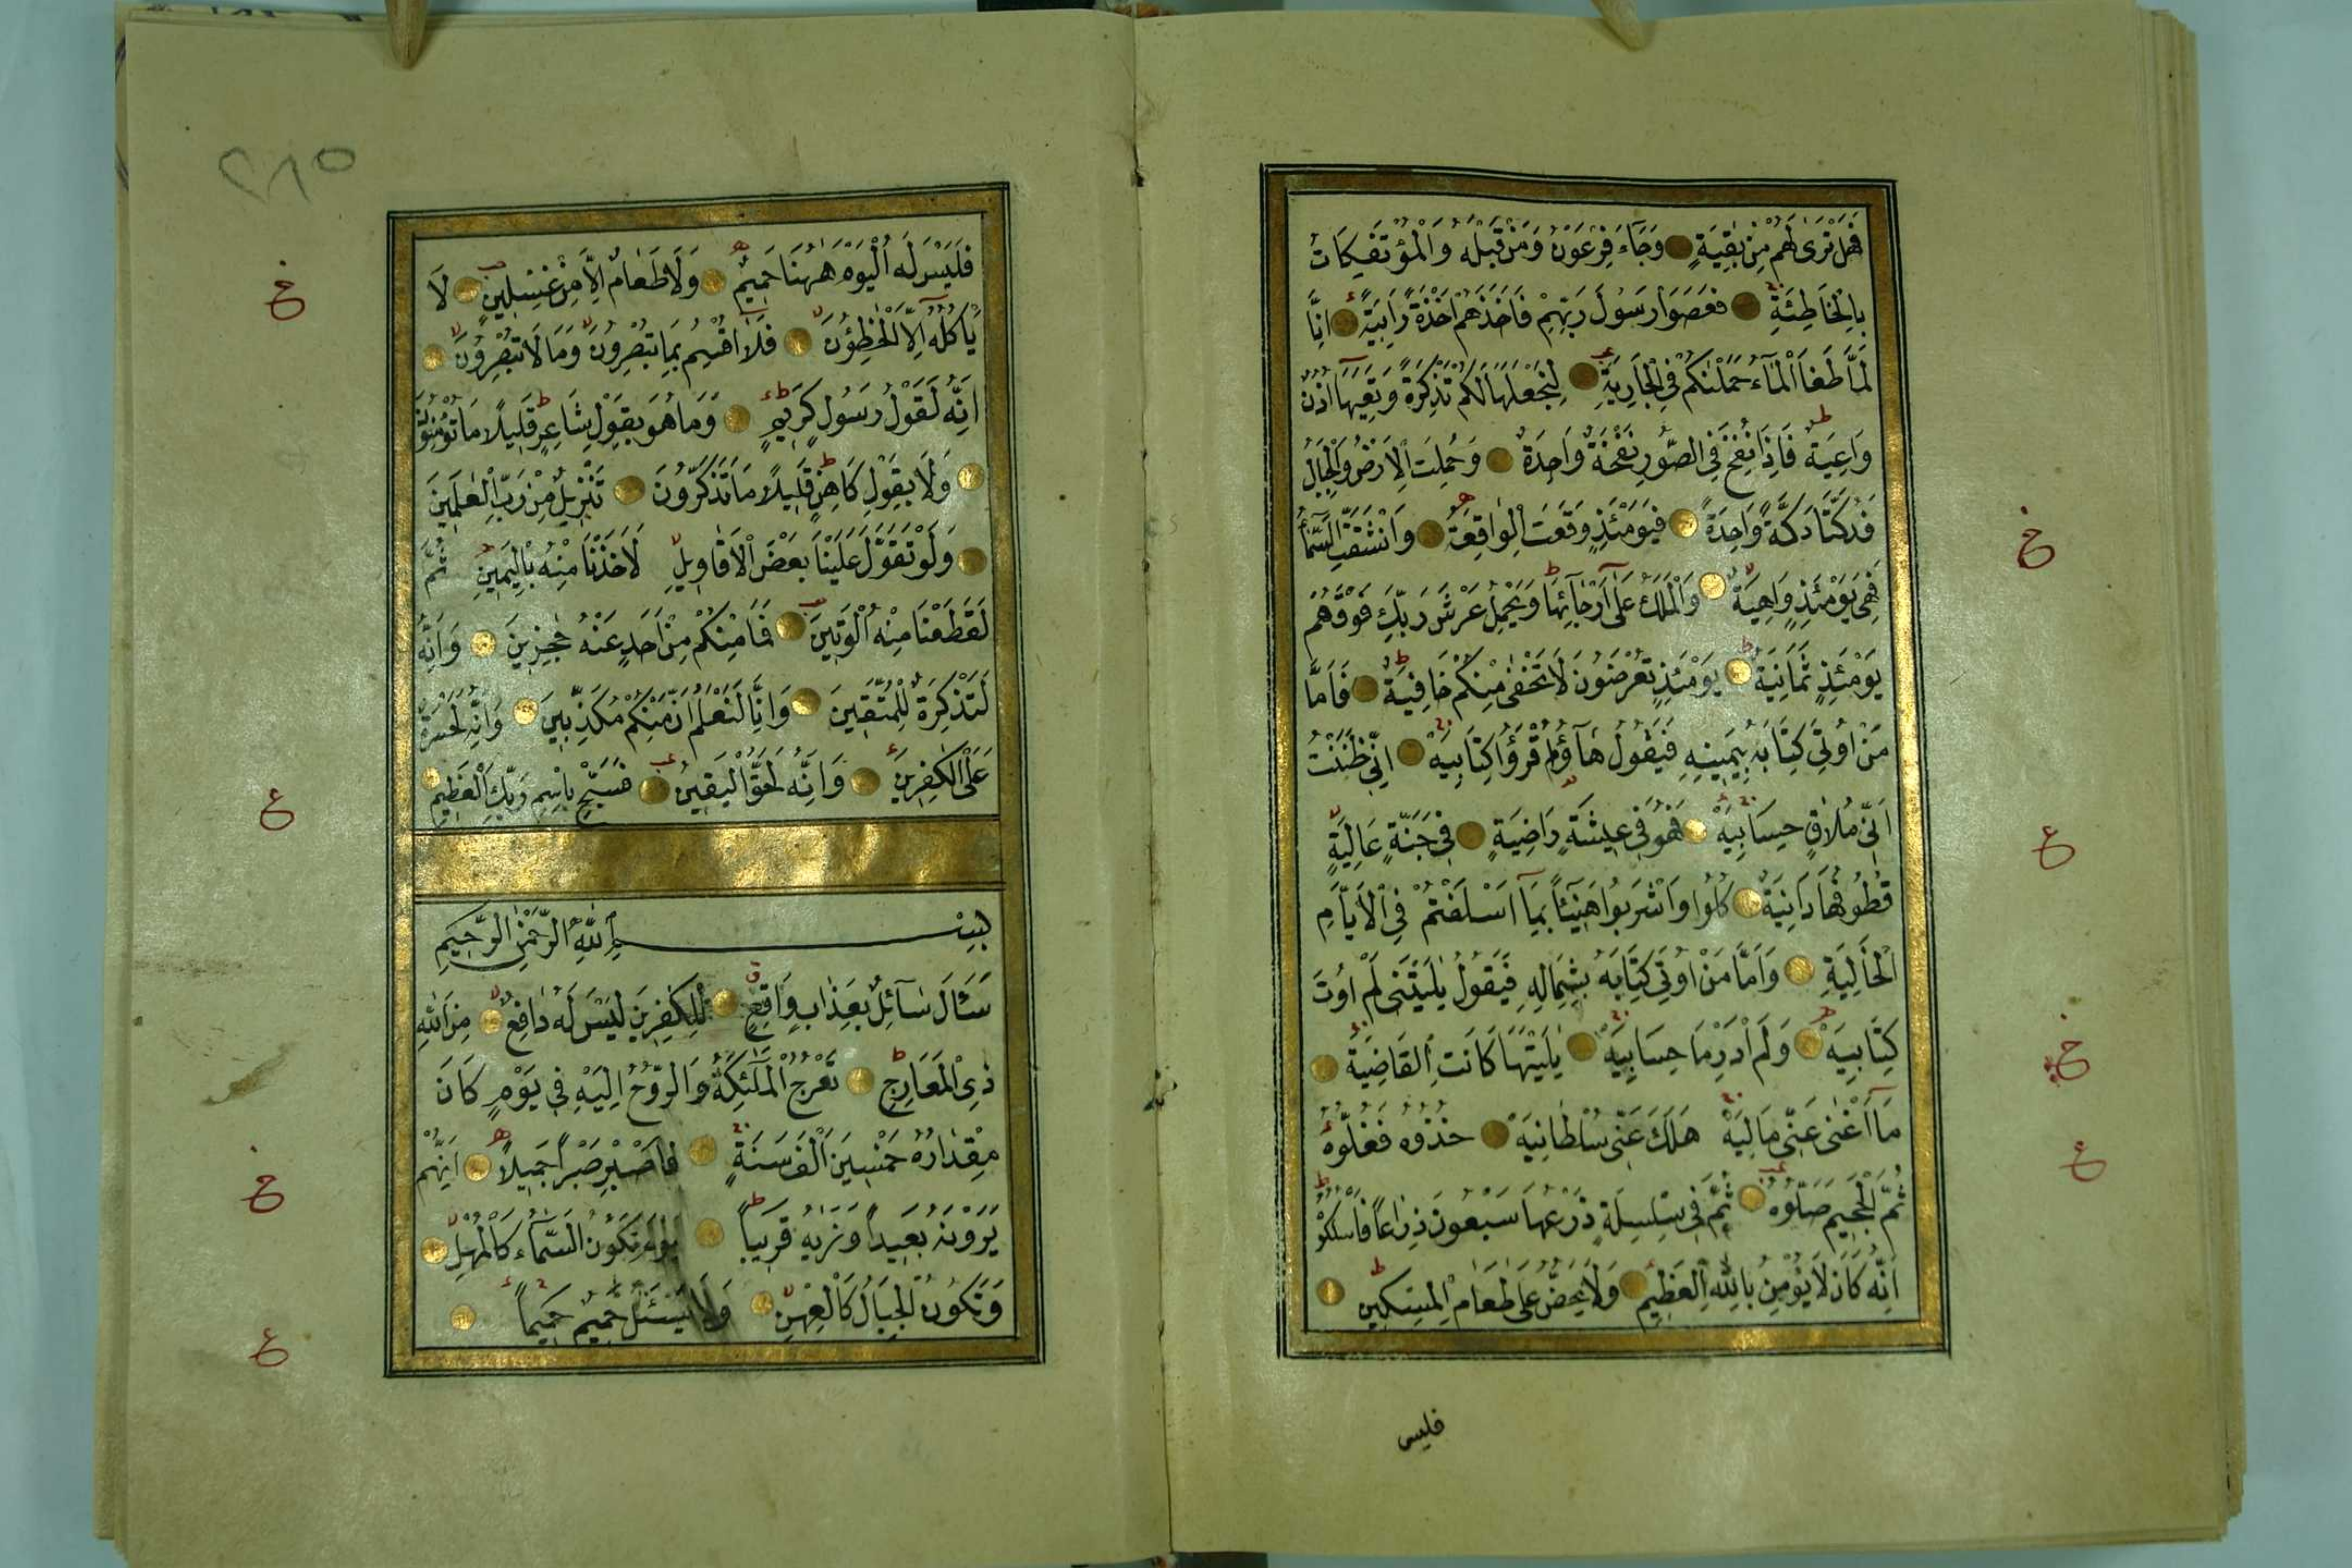 فَهَلْ تَرٰى لَهُمْ مِنْ بَاقِيَةٍ وَجَاءَ فِرْعَوْنُ وَمَنْ قَبْلَهُ وَالْمُؤْتَفِكَاتُ
بِالْخَاطِئَةِ فَعَصَوْا رَسُولَ رَبِّهِمْ فَاَخَذَهُمْ اَخْذَةً رَابِيَةً اِنَّا
لَمَّا طَغَا الْمَاءُ حَمَلْنٰكُمْ فِى الْجَارِيَةِ لِنَجْعَلَهَا لَكُمْ تَذْكِرَةً وَتَعِيَهَا اُذُنٌ
وَاعِيَةٌ فَاِذَا نُفِخَ فِى الصُّورِ نَفْخَةٌ وَاحِدَةٌ وَحُمِلَتِ الْاَرْضُ وَالْجِبَالُ
فَدُكَّتَا دَكَّةً وَاحِدَةً فَيَوْمَئِذٍ وَقَعَتِ الْوَاقِعَةُ وَانْشَقَّتِ السَّمَاءُ
فَهِىَ يَوْمَئِذٍ وَاهِيَةٌ وَالْمَلَكُ عَلٰى اَرْجَائِهَا وَيَحْمِلُ عَرْشَ رَبِّكَ فَوْقَهُمْ
يَوْمَئِذٍ ثَمَانِيَةٌ يَوْمَئِذٍ تُعْرَضُونَ لَا تَخْفٰى مِنْكُمْ خَافِيَةٌ فَاَمَّا
مَنْ اُوتِىَ كِتَابَهُ بِيَمِينِهِ فَيَقُولُ هَاؤُمُ اقْرَؤُا كِتَابِيَهْ اِنِّى ظَنَنْتُ
اَنِّى مُلَاقٍ حِسَابِيَهْ فَهُوَ فِى عِيشَةٍ رَاضِيَةٍ فِى جَنَّةٍ عَالِيَةٍ
قُطُوفُهَا دَانِيَةٌ كُلُوا وَاشْرَبُوا هَنِيئًا بِمَا اَسْلَفْتُمْ فِى الْاَيَّامِ
الْخَالِيَةِ وَاَمَّا مَنْ اُوتِىَ كِتَابَهُ بِشِمَالِهِ فَيَقُولُ يٰلَيْتَنِى لَمْ اُوتَ
كِتَابِيَهْ وَلَمْ اَدْرِ مَا حِسَابِيَهْ يٰلَيْتَهَا كَانَتِ الْقَاضِيَةَ
مَا اَغْنٰى عَنِّى مَالِيَهْ هَلَكَ عَنِّى سُلْطَانِيَهْ خُذُوهُ فَغُلُّوهُ
ثُمَّ الْجَحِيمَ صَلُّوهُ ثُمَّ فِى سِلْسِلَةٍ ذَرْعُهَا سَبْعُونَ ذِرَاعًا فَاسْلُكُوهُ
اِنَّهُ كَانَ لَا يُؤْمِنُ بِاللّٰهِ الْعَظِيمِ وَلَا يَحُضُّ عَلٰى طَعَامِ الْمِسْكِينِ
فليس
خ
ع
خ
ع
٢٨٥
فَلَيْسَ لَهُ الْيَوْمَ هٰهُنَا حَمِيمٌ وَلَا طَعَامٌ اِلَّا مِنْ غِسْلِينٍ لَا
يَاْكُلُهُ اِلَّا الْخٰطِؤُنَ فَلَا اُقْسِمُ بِمَا تُبْصِرُونَ وَمَا لَا تُبْصِرُونَ
اِنَّهُ لَقَوْلُ رَسُولٍ كَرِيمٍ وَمَا هُوَ بِقَوْلِ شَاعِرٍ قَلِيلًا مَا تُؤْمِنُونَ
وَلَا بِقَوْلِ كَاهِنٍ قَلِيلًا مَا تَذَكَّرُونَ تَنْزِيلٌ مِنْ رَبِّ الْعٰلَمِينَ
وَلَوْ تَقَوَّلَ عَلَيْنَا بَعْضَ الْاَقَاوِيلِ لَاَخَذْنَا مِنْهُ بِالْيَمِينِ ثُمَّ
لَقَطَعْنَا مِنْهُ الْوَتِينَ فَمَا مِنْكُمْ مِنْ اَحَدٍ عَنْهُ حٰجِزِينَ وَاِنَّهُ
لَتَذْكِرَةٌ لِلْمُتَّقِينَ وَاِنَّا لَنَعْلَمُ اَنَّ مِنْكُمْ مُكَذِّبِينَ وَاِنَّهُ لَحَسْرَةٌ
عَلَى الْكٰفِرِينَ وَاِنَّهُ لَحَقُّ الْيَقِينِ فَسَبِّحْ بِاسْمِ رَبِّكَ الْعَظِيمِ
بِسْمِ اللّٰهِ الرَّحْمٰنِ الرَّحِيمِ
سَئَالَ سَآئِلٌ بِعَذَابٍ وَاقِعٍ لِلْكٰفِرِينَ لَيْسَ لَهُ دَافِعٌ مِنَ اللّٰهِ
ذِى الْمَعَارِجِ تَعْرُجُ الْمَلٰئِكَةُ وَالرُّوحُ اِلَيْهِ فِى يَوْمٍ كَانَ
مِقْدَارُهُ خَمْسِينَ اَلْفَ سَنَةٍ فَاصْبِرْ صَبْرًا جَمِيلًا اِنَّهُمْ
يَرَوْنَهُ بَعِيدًا وَنَرٰيهُ قَرِيبًا يَوْمَ تَكُونُ السَّمَاءُ كَالْمُهْلِ
وَتَكُونُ الْجِبَالُ كَالْعِهْنِ وَلَا يَسْئَلُ حَمِيمٌ حَمِيمًا
خ
ع
خ
ع